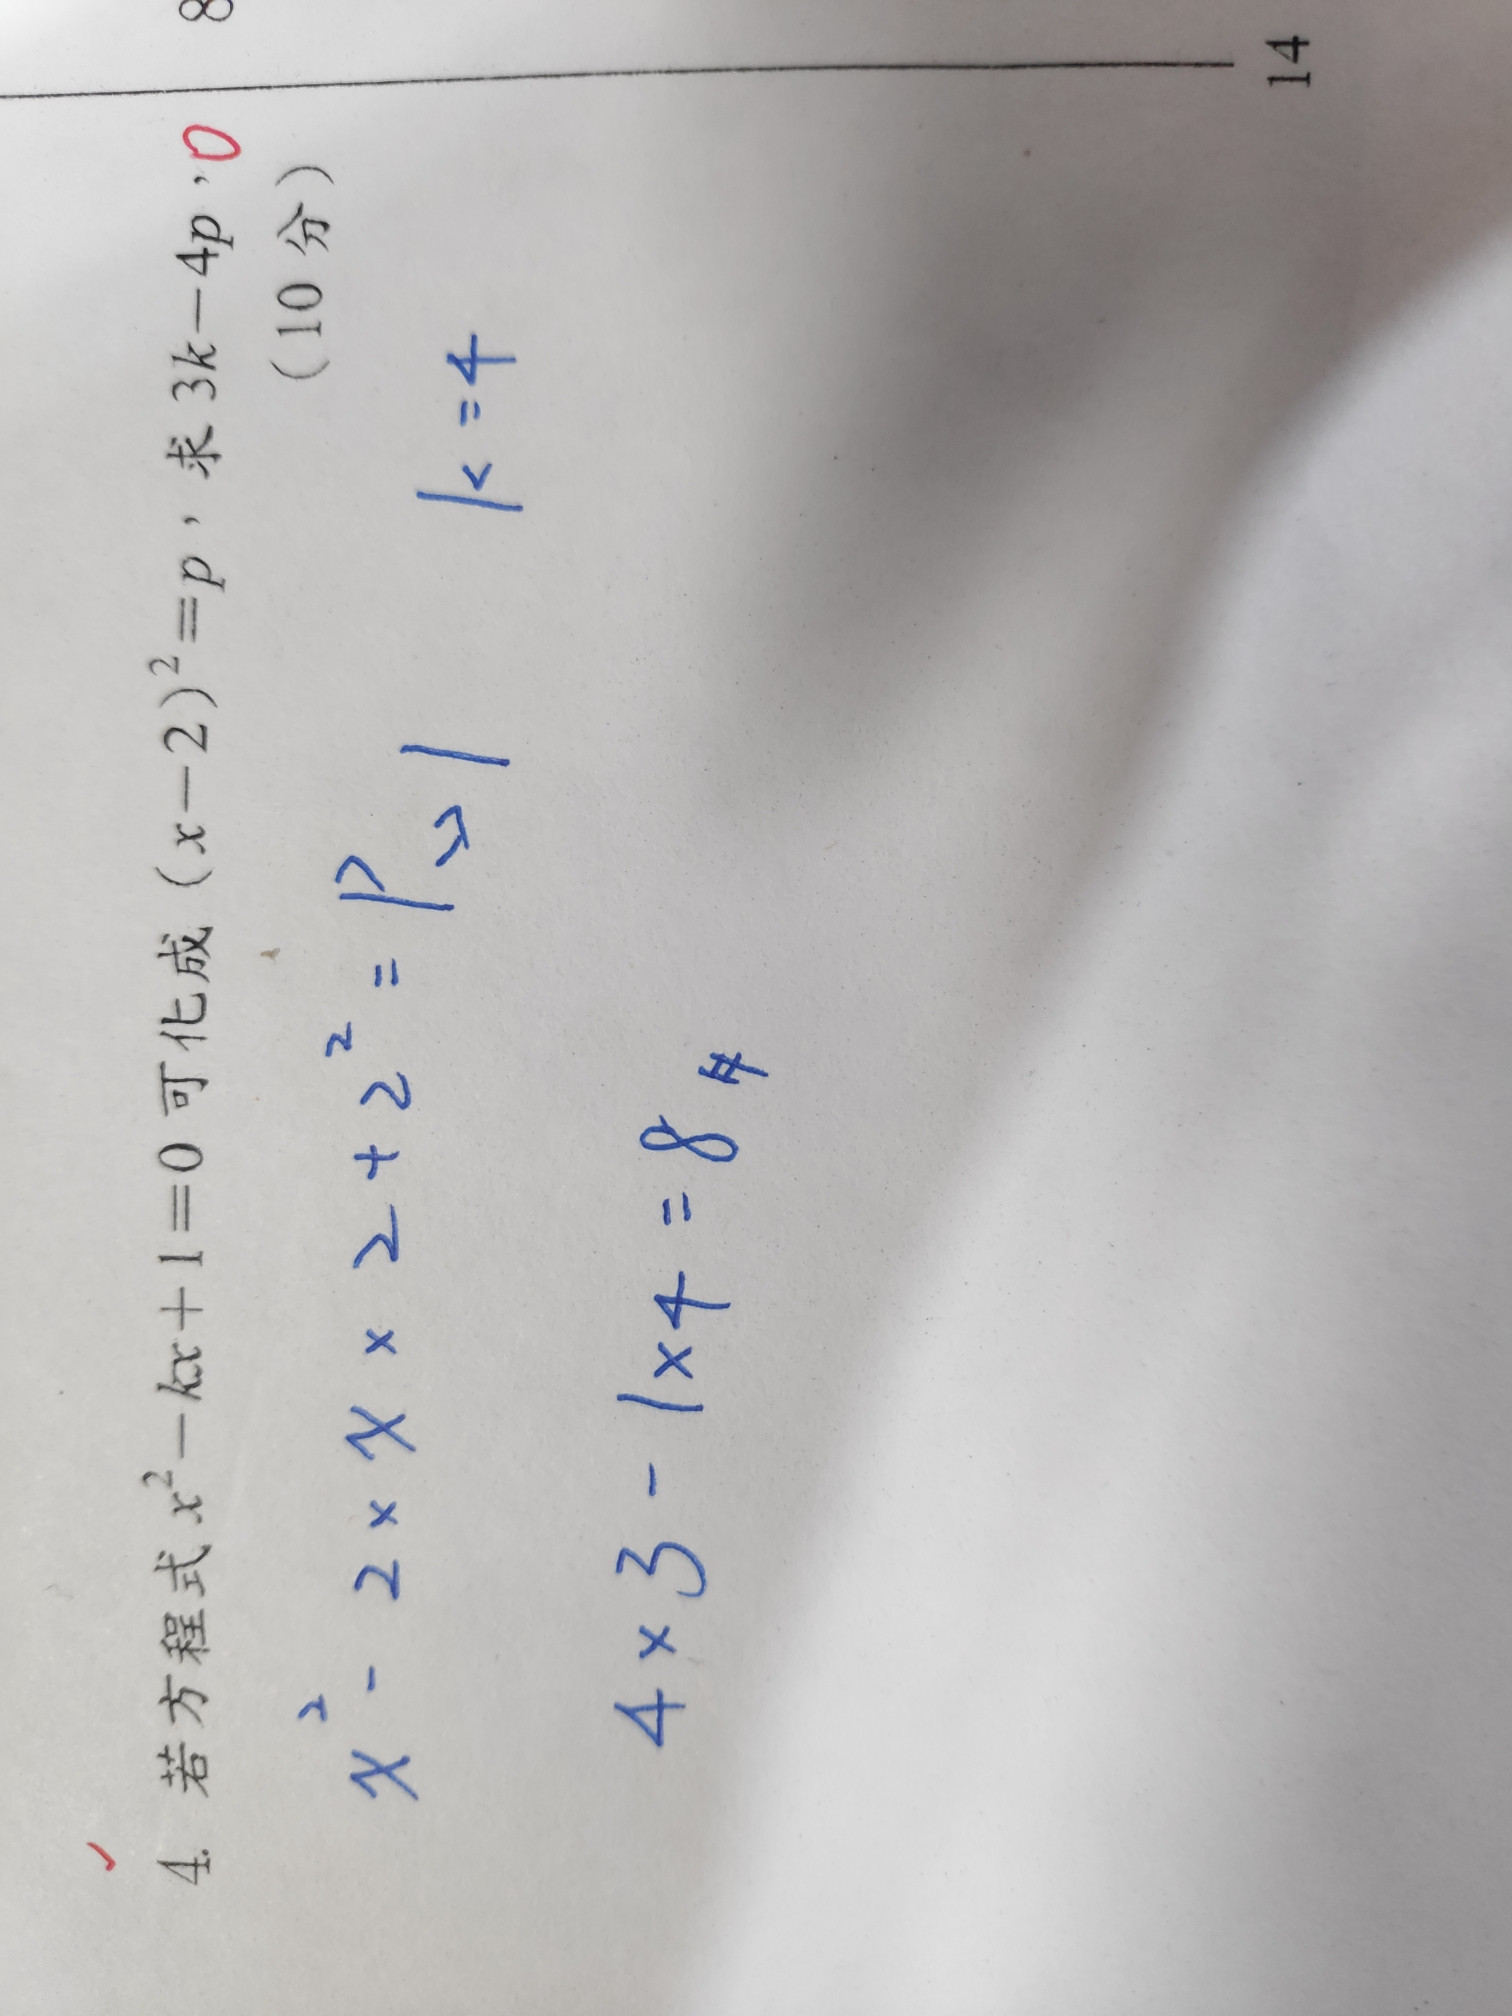 4. 若方程式 x²−kx+1=0 可化成 (x−2)²=p，求 3k−4p。
(10 分)
x² - 2 × x × 2 + 2² = P
1
k = 4
4 × 3 - 1 × 4 = 8 #
14